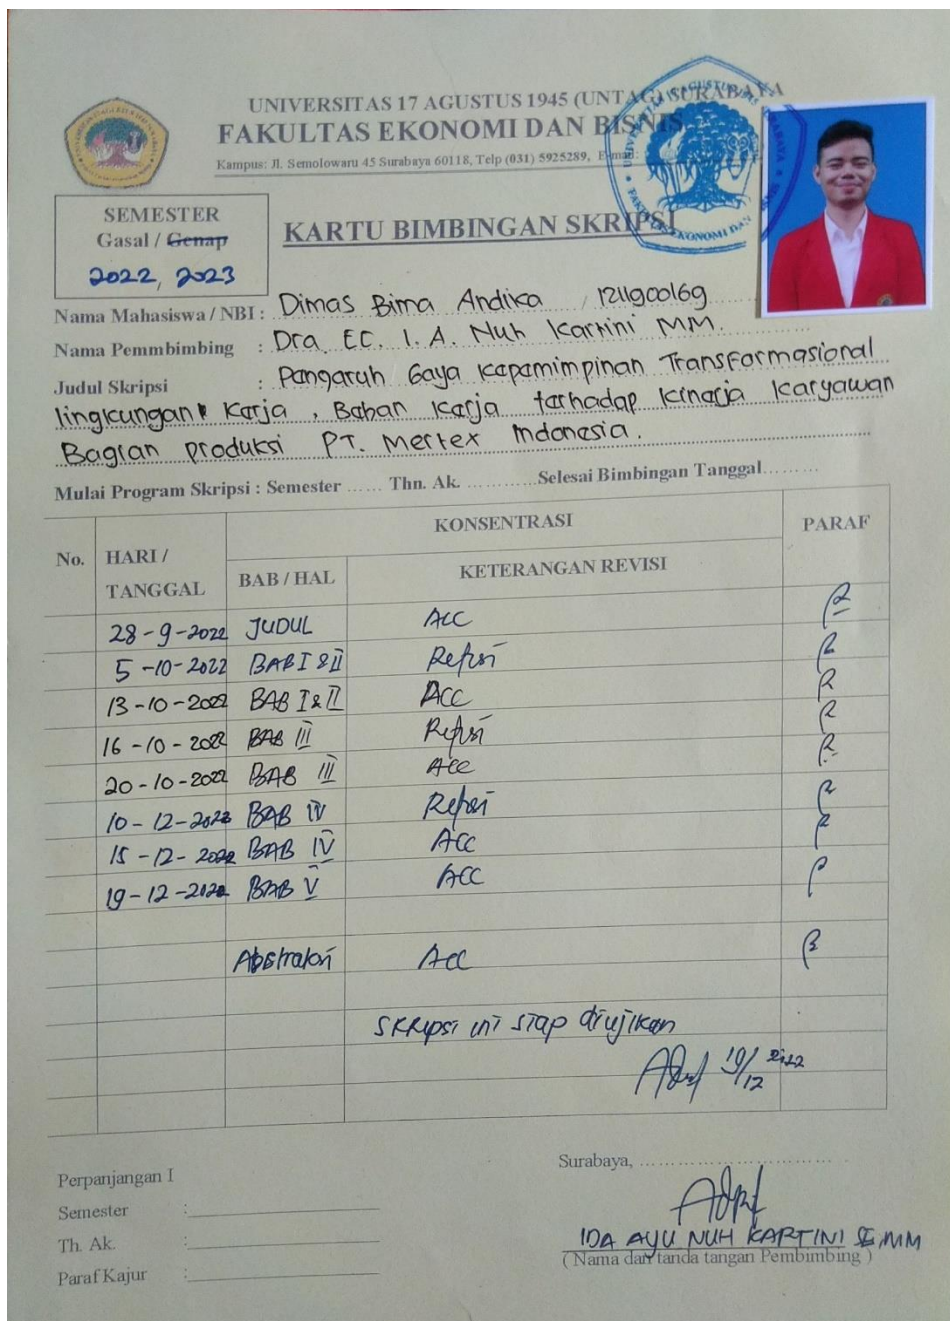 UNIVERSITAS 17 AGUSTUS 1945 (UNTAG) SURABAYA
FAKULTAS EKONOMI DAN BISNIS
Kampus: Jl. Semolowaru 45 Surabaya 60118, Telp (031) 5925289, E-mail:
SEMESTER
Gasal / Genap
2022, 2023
KARTU BIMBINGAN SKRIPSI
Nama Mahasiswa / NBI : Dimas Bima Andika / 1211900169
Nama Pemmbimbing : Dra. EC. I. A. Nuh Kartini MM.
Judul Skripsi : Pangaruh Gaya Kapamimpinan Transformasional
lingkungan Karja , Baban Karja tarhadap kinarja Karyawan
Bagian produksi PT. Mertex Indonasia.
Mulai Program Skripsi : Semester ...... Thn. Ak. ............Selesai Bimbingan Tanggal.........
No. HARI / TANGGAL KONSENTRASI PARAF
BAB / HAL KETERANGAN REVISI
28-9-2022 JUDUL ACC
5-10-2022 BAB I & II Refisi
13-10-2022 BAB I & II ACC
16-10-2022 BAB III Refisi
20-10-2022 BAB III Acc
10-12-2022 BAB IV Refisi
15-12-2022 BAB IV ACC
19-12-2022 BAB V ACC
Abstraksi Acc
SKRipsi ini siap diujikan
19/12 2022
Perpanjangan I
Surabaya, ................................
Semester :
Th. Ak. :
IDA AYU NUH KARTINI SE, MM
Paraf Kajur :
( Nama dan tanda tangan Pembimbing )